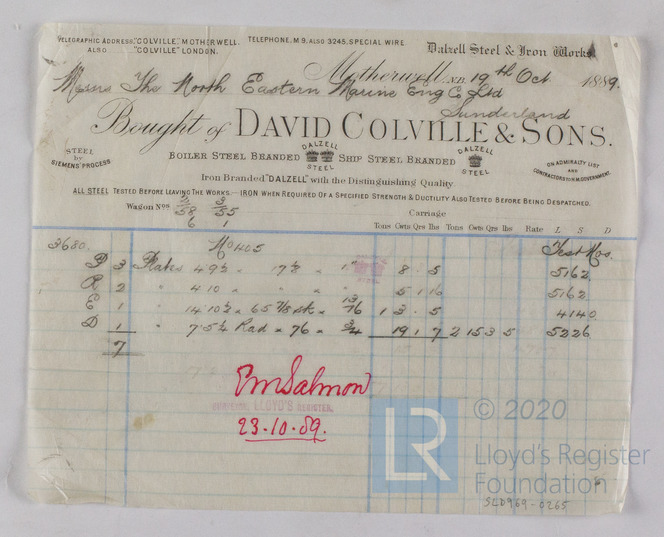 TELEGRAPHIC ADDRESS, "COLVILLE," MOTHERWELL.
ALSO "COLVILLE" LONDON.
TELEPHONE, M 9, ALSO 3245, SPECIAL WIRE.
Dalzell Steel & Iron Works
Motherwell, N.B. 19th Oct 1889.
Messrs The North Eastern Marine Eng Co Ltd
Sunderland
Bought of DAVID COLVILLE & SONS.
STEEL by SIEMENS' PROCESS
BOILER STEEL BRANDED DALZELL STEEL SHIP STEEL BRANDED DALZELL STEEL
ON ADMIRALTY LIST AND CONTRACTORS TO H.M. GOVERNMENT.
Iron Branded "DALZELL" with the Distinguishing Quality
ALL STEEL TESTED BEFORE LEAVING THE WORKS.—IRON WHEN REQUIRED OF A SPECIFIED STRENGTH & DUCTILITY ALSO TESTED BEFORE BEING DESPATCHED.
Wagon Nos 58 55 Carriage
6 1
Tons Cwts Qrs lbs Tons Cwts Qrs lbs Rate L S D
3680. No 405 Test Nos.
P 3 Plates 4 9½ " 17½ " 1" 8 . 5 5162
R 2 " 4 10 " " " 5 1 16 5162
E 1 " 14 10½ " 65 7/8 " 13/16 1 3 . 5 4140
D 1 " 7.5¼ Rad " 76 " ¾ 19 1 7 2 15 3 5 5226
7
PmSalmon
SURVEYOR, LLOYD'S REGISTER.
23.10.89.
LR
© 2020
Lloyd's Register
Foundation
SLD969-0265